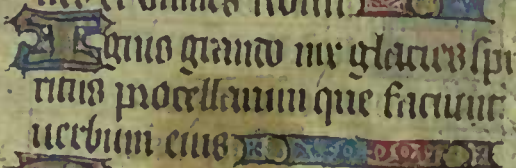 et omnes
Ignis grando nix glacies spi
ritus procellarum que faciunt
uerbum eius